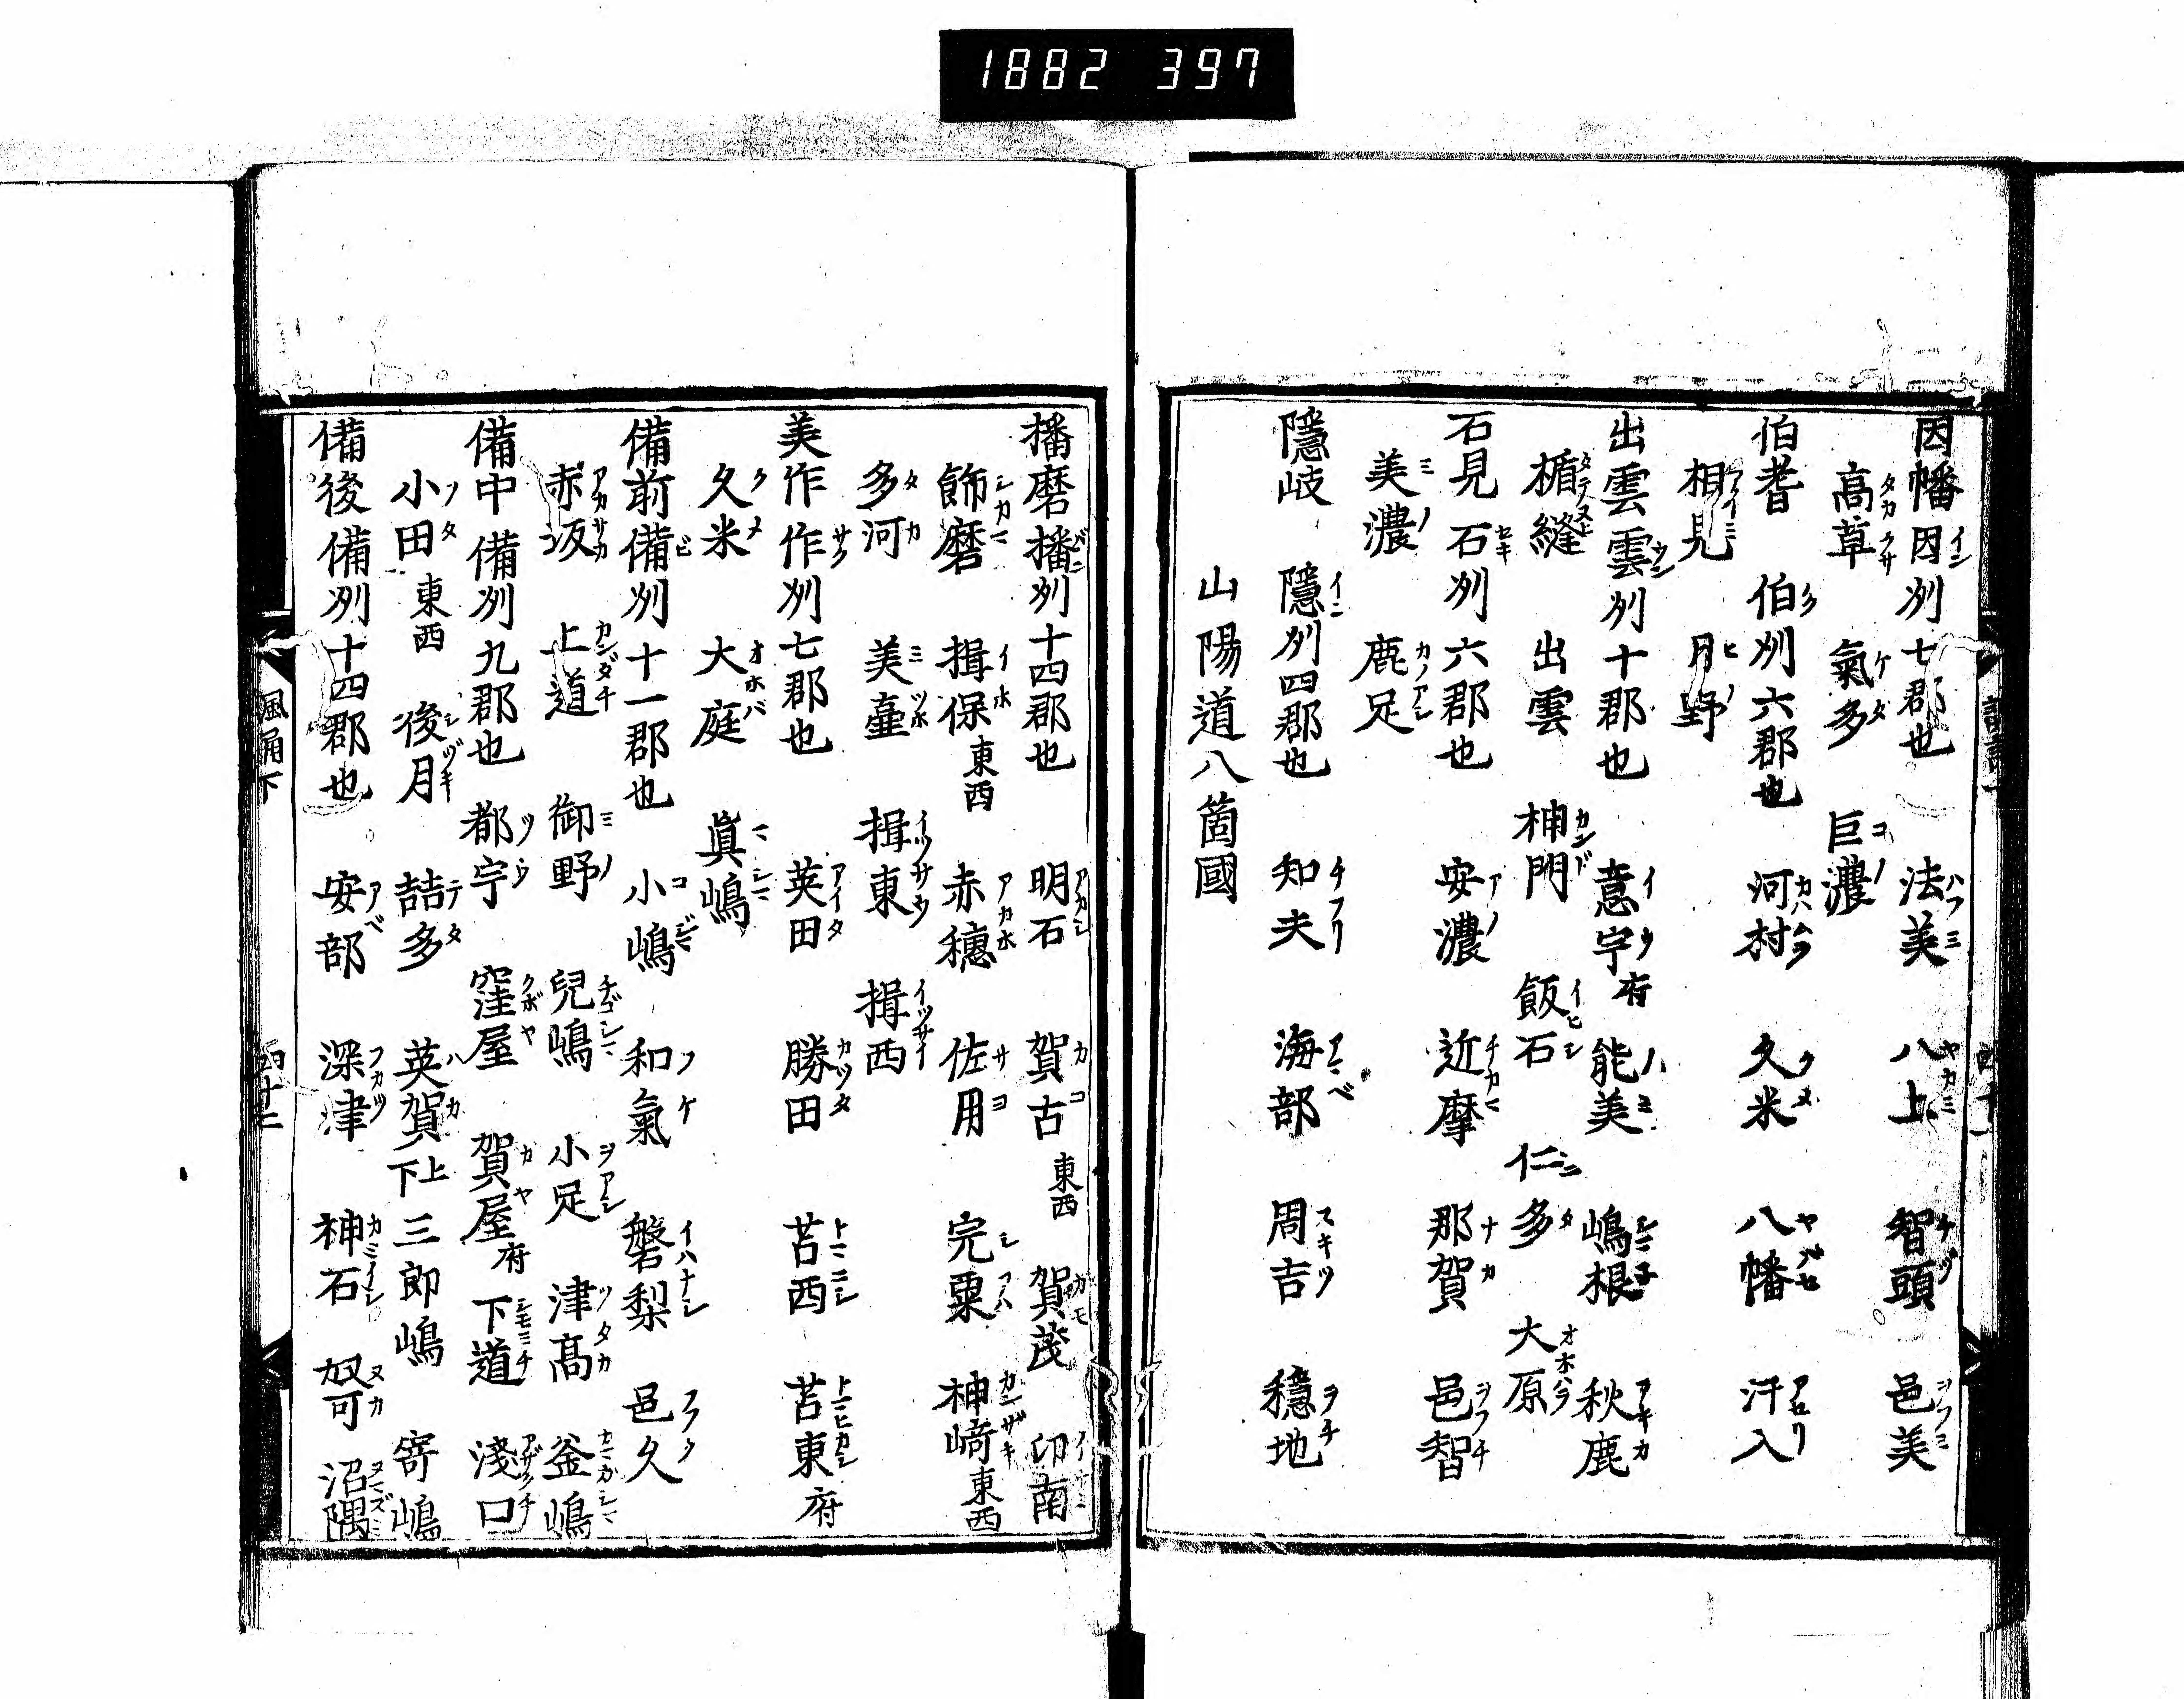 1882 397
因幡因刕七郡也 法美 八上 智頭 邑美
高草 氣多 巨濃
伯耆 伯刕六郡也 河村 久米 八幡 汗入
相見 月野
出雲雲刕十郡也 意宇府 能美 嶋根 秋鹿
楯縫 出雲 神門 飯石 仁多 大原
石見石刕六郡也 安濃 近摩 那賀 邑智
美濃 鹿足
隱岐 隱刕四郡也 知夫 海部 周吉 穩地
山陽道八箇國
播磨播刕十四郡也 明石 賀古東西 賀茂 印南
飾磨 揖保東西 赤穗 佐用 完粟 神﨑東西
多河 美壷 揖東 揖西
美作作刕七郡也 英田 勝田 苫西 苫東府
久米 大庭 眞嶋
備前備刕十一郡也 小嶋 和氣 磐梨 邑久
赤坂 上道 御野 兒嶋 小足 津髙 釜嶋
備中備刕九郡也 都宇 窪屋 賀屋府 下道 淺口
小田東西 後月 喆多 英賀上下 三郎嶋 寄嶋
備後備刕十四郡也 安部 深津 神石 怒可 沼隅